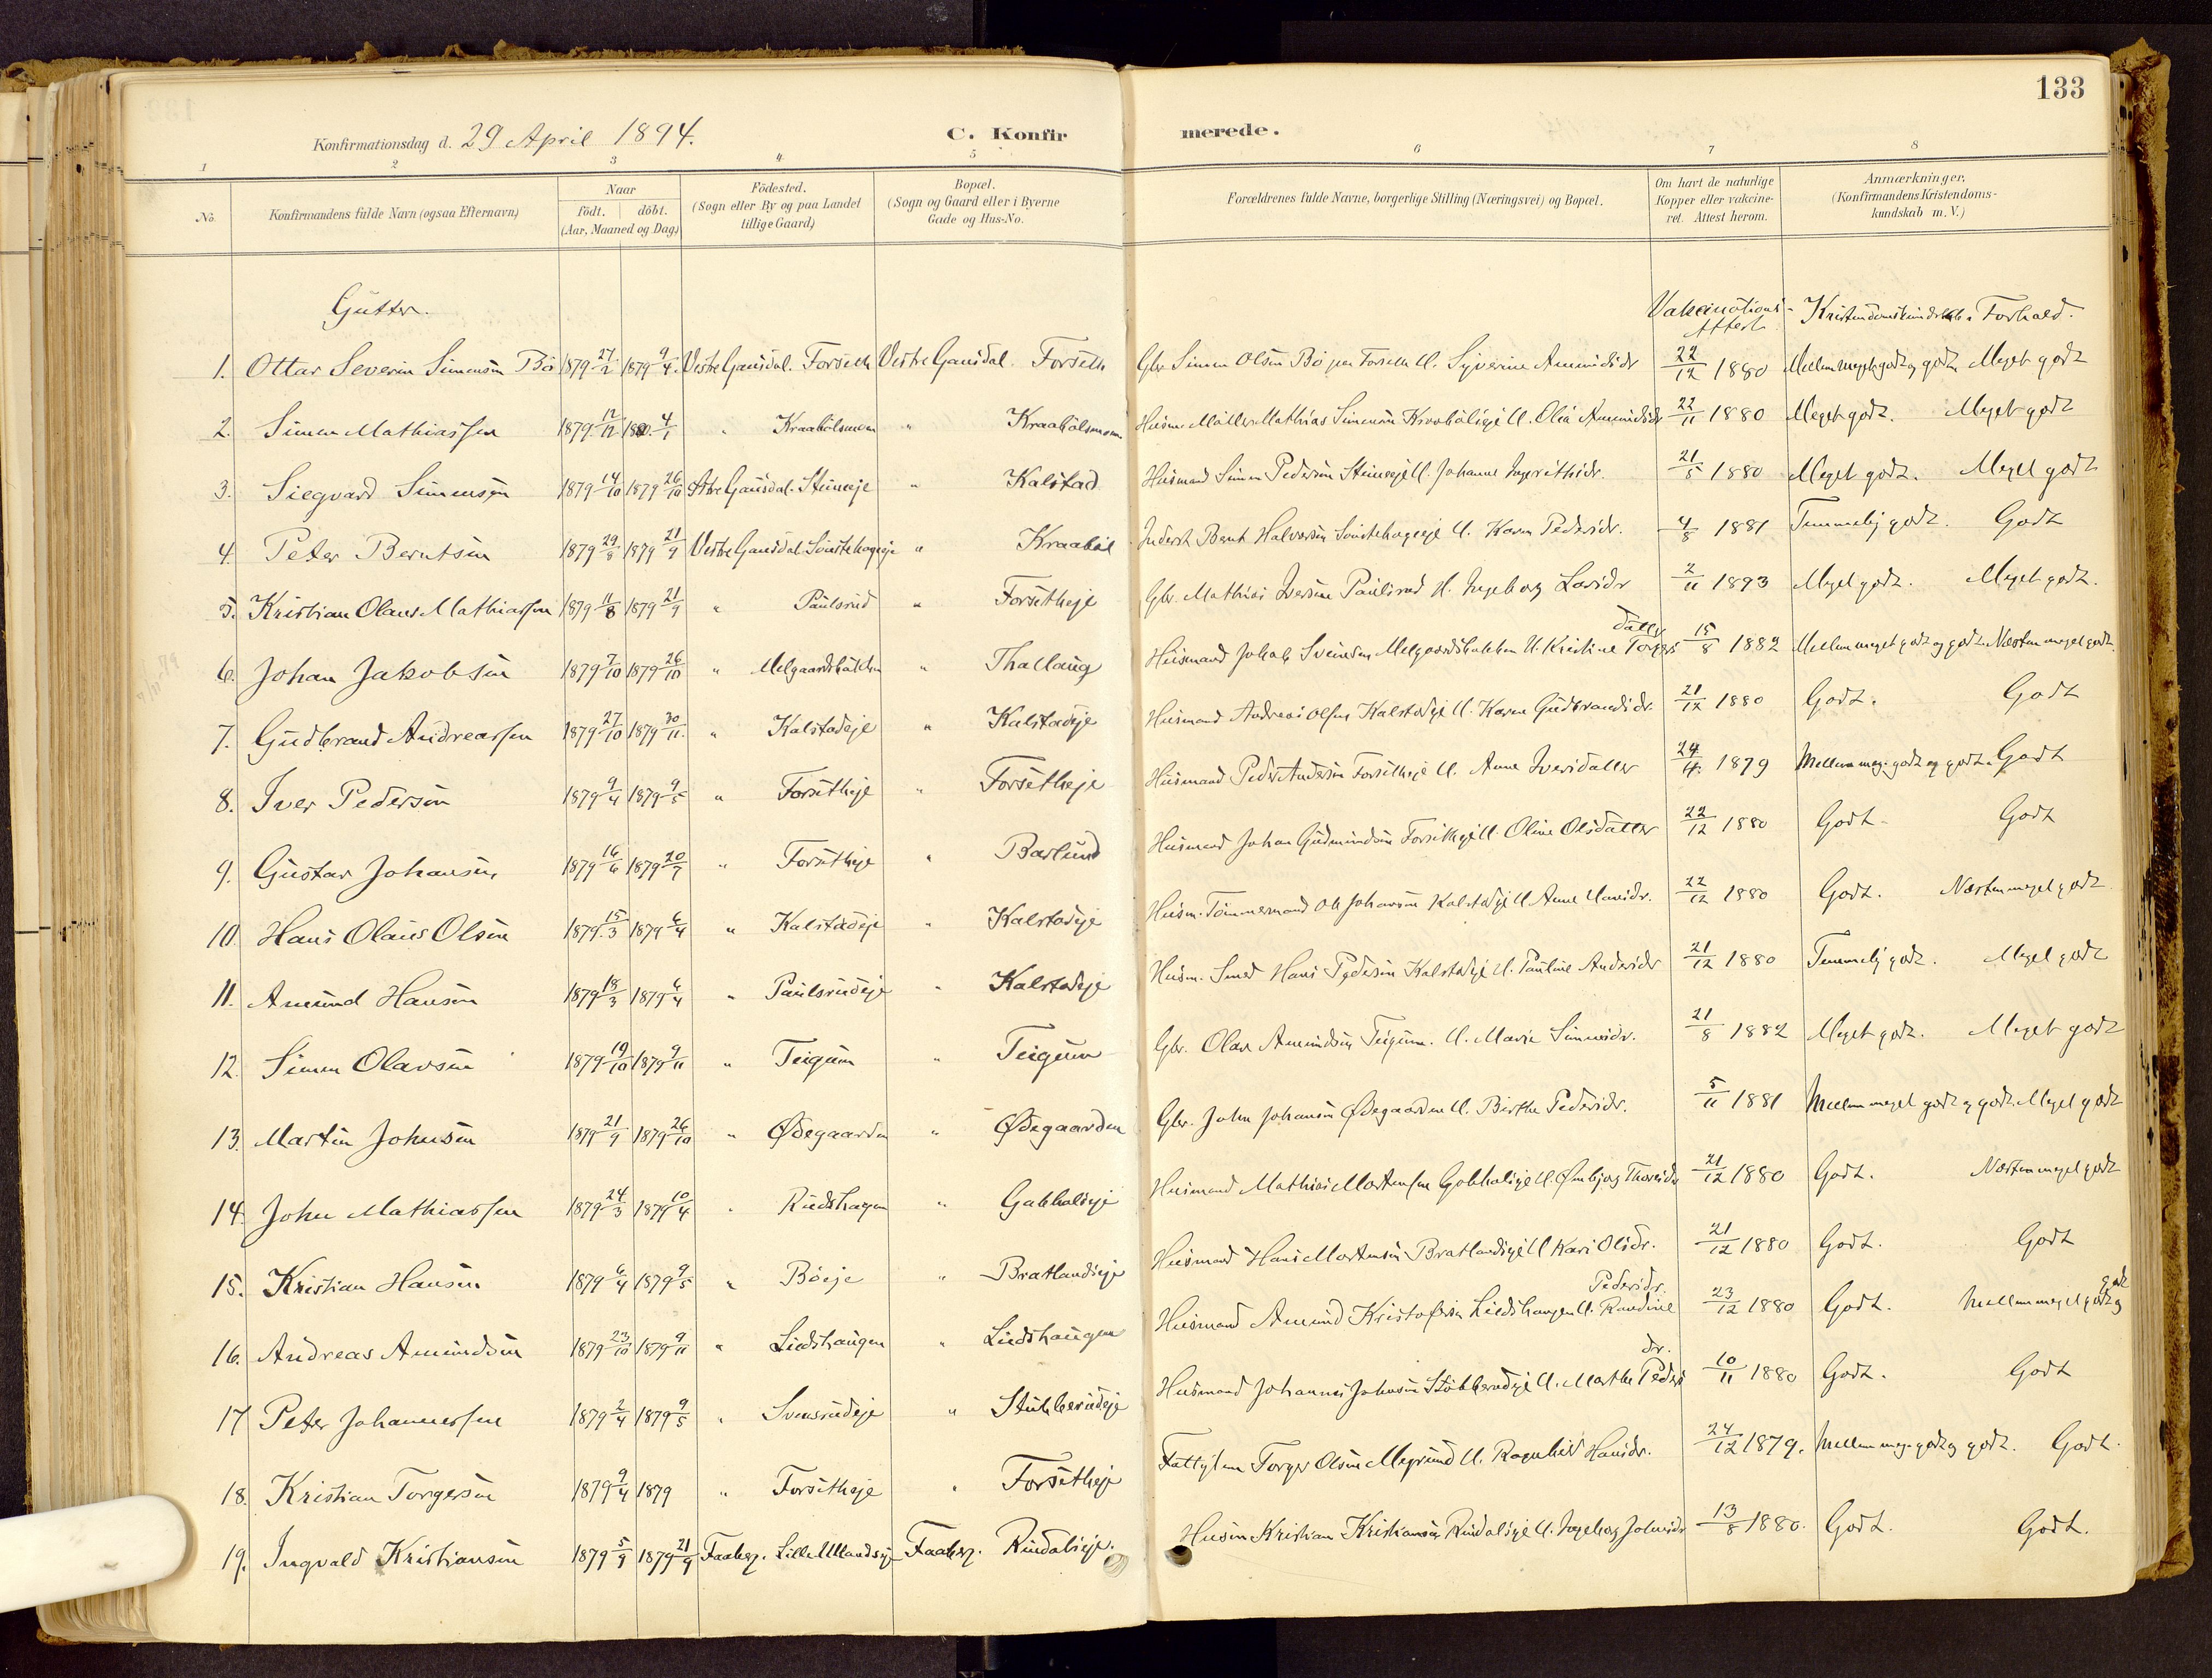 133
Konfirmationsdag d. 29 April 1894.
C. Konfirmerede.
1 2 3 4 5 6 7 8
No.
Konfirmandens fulde Navn (ogsaa Efternavn)
Naar
födt. döbt.
(Aar, Maaned og Dag)
Födested.
(Sogn eller By og paa Landet
tillige Gaard)
Bopæl.
(Sogn og Gaard eller i Byerne
Gade og Hus-No.
Forældrenes fulde Navne, borgerlige Stilling (Næringsvei) og Bopæl.
Om havt de naturlige
Kopper eller vakcine-
ret. Attest herom.
Anmærkninger.
(Konfirmandens Kristendoms-
kundskab m. V.)
Gutter.
Vakcinations- Attest
Kristendomskundskab. Forhold.
1. Ottar Severin Simensen Bö 1879 27/2 1879 9/4 Vestre Gausdal. Forseth Vestre Gausdal Forseth Gbr. Simen Olsen Bö paa Forseth U. Syverine Amundsdr 22/12 1880 Mellem meget godt og godt. Meget godt
2. Simen Mathiassen 1879 12/12 1880 4/1 " Kraabölsmoen " Kraabölsmoen Husm. Möller Mathias Simensen Kraabölseje U. Olia Amundsdr 22/11 1880 Meget godt. Meget godt
3. Siegvard Simensen 1879 14/10 1879 26/10 Östre Gausdal. Steineeje " Kalstad Husmand Simen Pedersen Steinseje U. Johanne Ingerithsdr. 21/5 1880 Meget godt. Meget godt
4. Peter Berntsen 1879 29/8 1879 21/9 Vestre Gausdal. Svastehageeje " Kraaböl Inderst Bernt Halvorsen U. Karen Pedersdr. 4/8 1881 Temmelig godt. Godt
5. Kristian Olaus Mathiassen 1879 11/8 1879 21/9 " Paulsrud " Forsetheje Gbr. Mathias Iversen Paulsrud U. Ingeborg Larsdr 2/11 1893 Meget godt. Meget godt.
6. Johan Jakobsen 1879 7/10 1879 26/10 " Melgaardsbakken " Thallaug Husmand Jakob Svendsen Melgaardsbakken U. Kristine Torgersdatter 15/8 1882 Mellem meget godt og godt. Næsten meget godt.
7. Gudbrand Andreassen 1879 27/10 1879 30/11 " Kalstadeje " Kalstadeje Husmand Andreas Olsen Kalstadeje U. Karen Gudbrandsdr. 21/12 1880 Godt. Godt
8. Iver Pedersen 1879 9/4 1879 9/5 " Forsetheje " Forsetheje Husmand Peder Andersen Forsetheje U. Anne Iversdatter 24/4 1879 Mellem meg. godt og godt. Godt
9. Gustav Johansen 1879 16/6 1879 20/7 " Forsetheje " Barlund Husmand Johan Gudmundsen Forsetheje U. Oline Olsdatter 22/12 1880 Godt. Godt
10. Hans Olaus Olsen 1879 15/3 1879 6/4 " Kalstadeje " Kalstadeje Husm. Tömmermand Ole Johansen Kalstadeje U. Anne Hansdr. 22/12 1880 Godt. Næsten meget godt
11. Amund Hansen 1879 18/3 1879 6/4 " Paulsrudeje " Kalstadeje Husm. Smed Hans Pedersen Kalstadeje U. Pauline Andersdr 21/12 1880 Temmelig godt. Meget godt
12. Simen Olavsen 1879 19/10 1879 9/11 " Teigum " Teigum Gbr. Olav Amundsen Teigum. U. Marie Simensdr. 21/8 1882 Meget godt. Meget godt
13. Martin Johnsen 1879 21/9 1879 26/10 " Ødegaarden " Ødegaarden Gbr. John Johansen Ødegaarden U. Birthe Pedersdr. 5/11 1881 Mellem meget godt og godt. Meget godt
14. John Mathiassen 1879 24/3 1879 10/4 " Rudshagen " Husmand Mathias Mortensen U. Thoresdr 21/12 1880 Godt. Næsten meget godt
15. Kristian Hansen 1879 6/4 1879 9/5 " Böeje " Bratlandseje Husmand Hans Mortensen Bratlandseje U Kari Olsdr. 21/12 1880 Godt. Godt
16. Andreas Amundsen 1879 23/10 1879 9/11 " Liedshaugen " Liedshaugen Husmand Amund Kristofersen Liedshaugen U. Randine Pedersdr. 23/12 1880 Godt. Mellem meget godt og godt
17 Peter Johannessen 1879 2/4 1879 9/5 " Svensrudeje " Stubberudeje Husmand Johannes Johnsen Stubberudeje U. Marthe Pedersdr. 10/11 1880 Godt. Godt
18. Kristian Torgersen 1879 9/4 1879 " Forsetheje " Forsetheje Fattiglem Torger Olsen U. Ragnhild Hansdr. 24/12 1879. Mellem meg. godt og godt. Godt.
19. Ingvald Kristiansen 1879 5/9 1879 21/9 Faaberg. Faaberg. Rindalseje. Husm Kristian Kristiansen Rindalseje U. Ingeborg Johnsdr 13/8 1880. Godt. Godt.